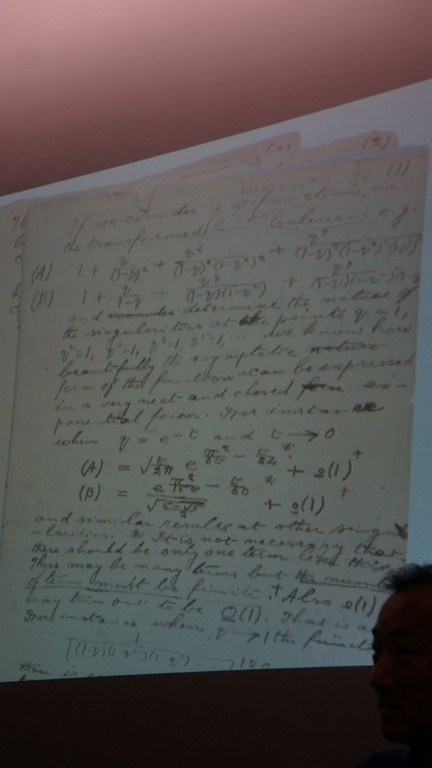 (2)
(1)
If we consider a ϑ-function in
the transformed Eulerian e.g.
(A) 1 + q/(1-q)² + q⁴/(1-q)²(1-q²)² + q⁹/(1-q)²(1-q²)²(1-q³)²
(B) 1 + q/1-q + q⁴/(1-q)(1-q²) + q⁹/(1-q)(1-q²)(1-q³)
and determine the nature of
the singularities at the points q = 1,
q² = 1, q³ = 1, q⁴ = 1, ... we know how
beautifully the asymptotic
form of the function can be expressed
in a very neat and closed ex-
ponential form. For instance
when q = e^-t and t → 0
(A) = √(t/2π) e^(π²/6t - t/24) + o(1)†
(B) = e^(π²/15t - t/60) / √(5-√5/2) + o(1)†
and similar results at other singu-
larities. * It is not necessary that
there should be only one term like this.
There may be many terms but the number
of terms must be finite. † Also o(1)
may turn out to be O(1). That is a
For instance when q → 1 the function